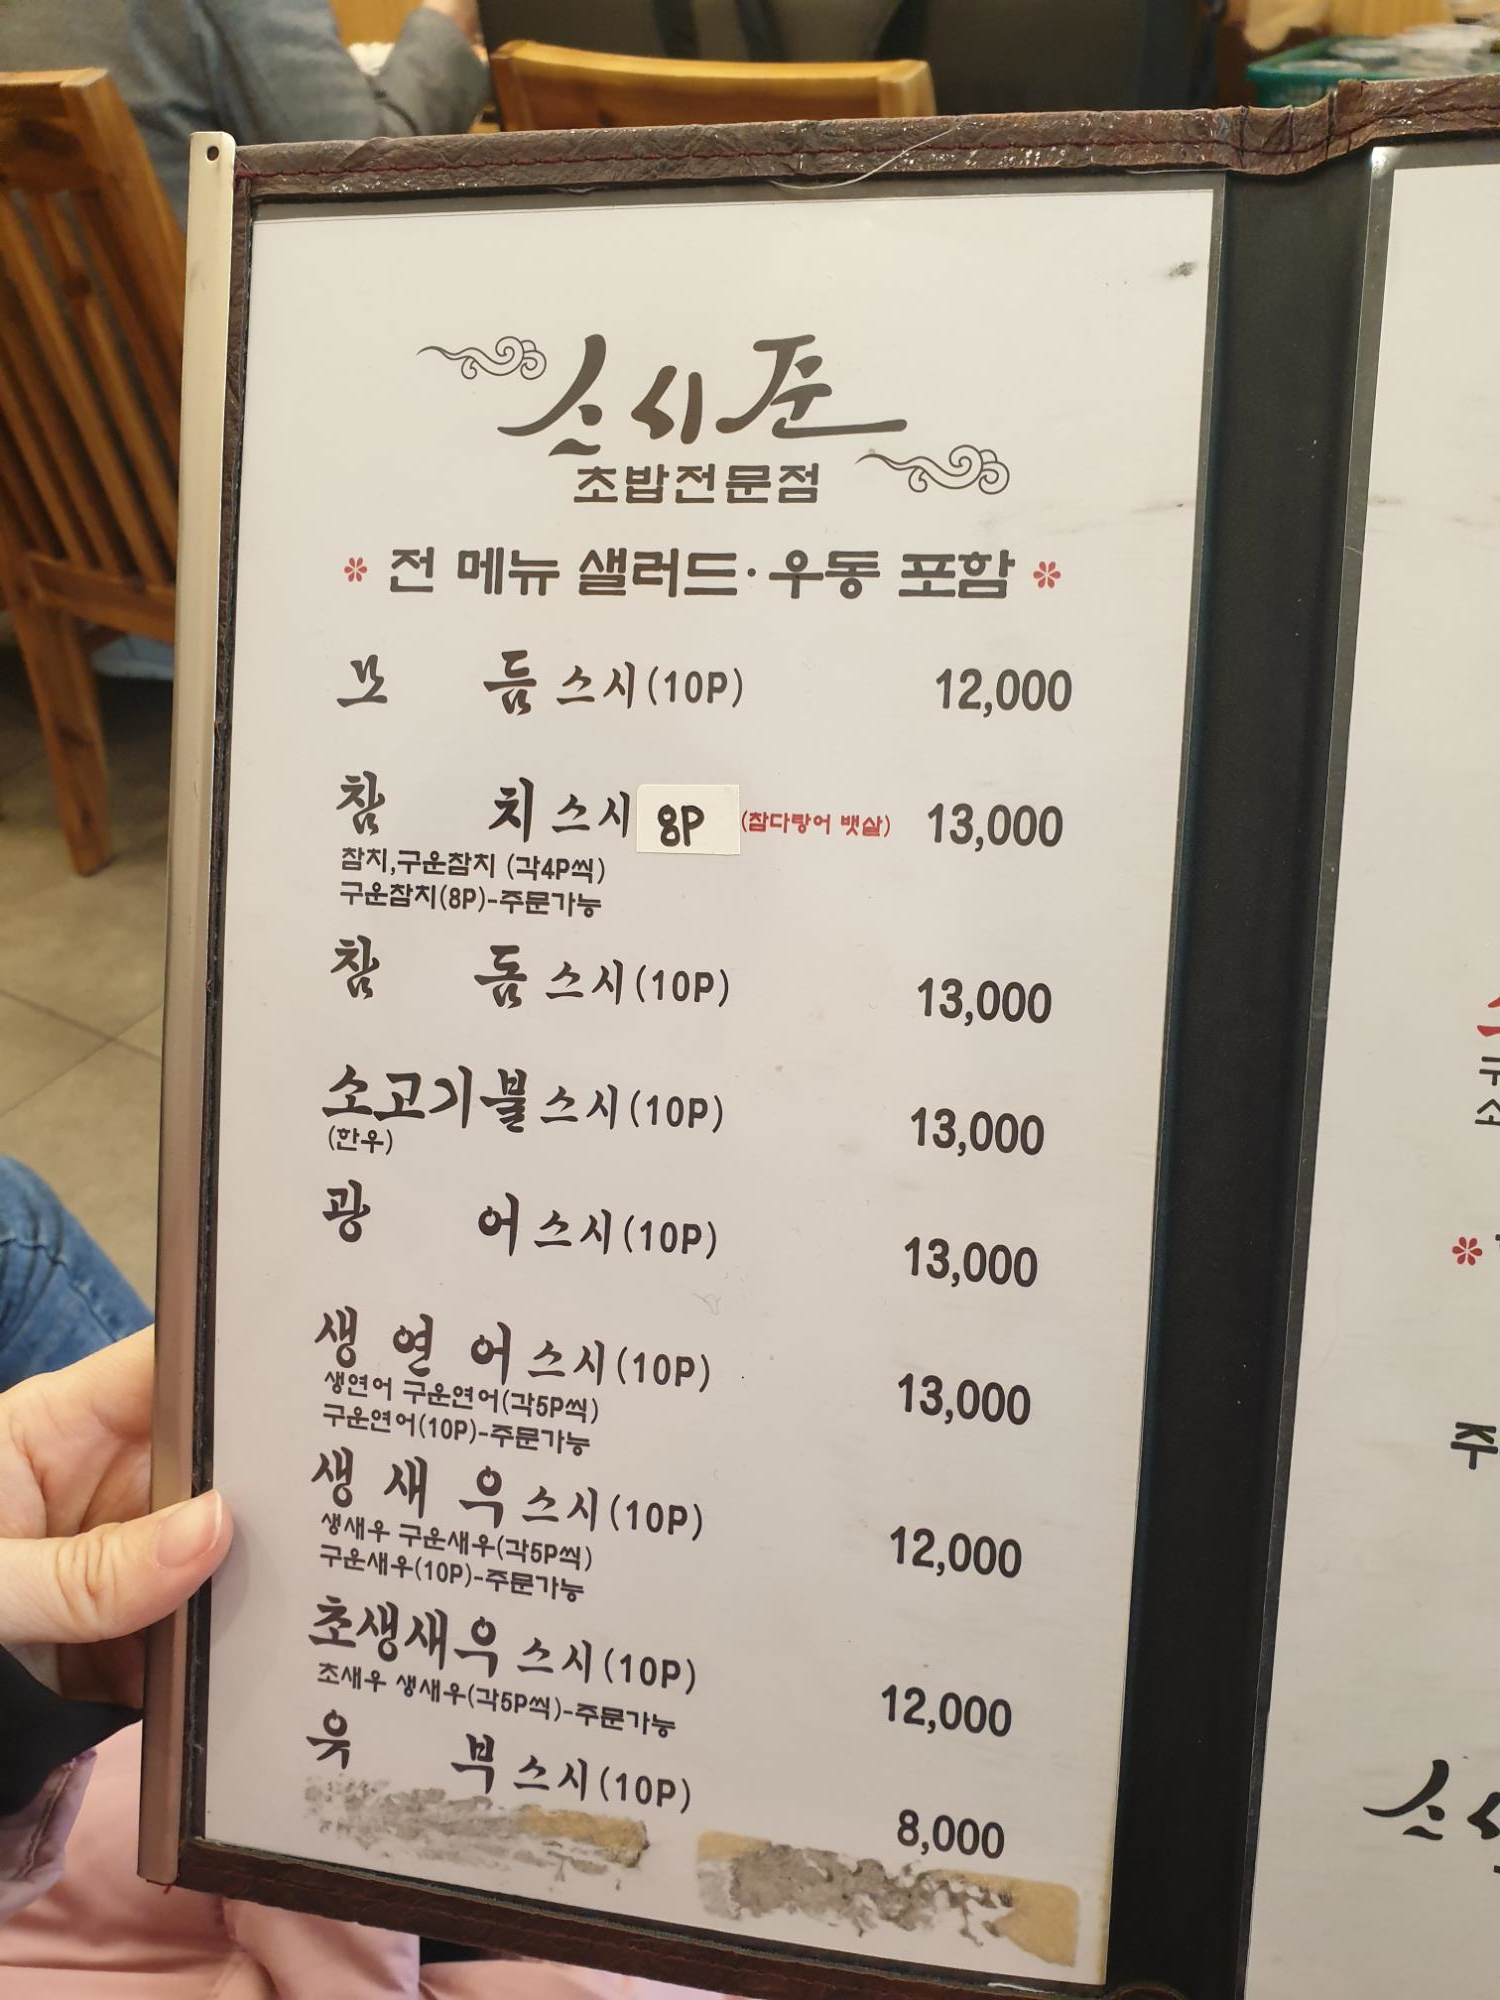 스시준
초밥전문점
전 메뉴 샐러드·우동 포함
모 듬 스시(10P) 12,000
참 치 스시 8P (참다랑어 뱃살) 13,000
참치,구운참치 (각4P씩)
구운참치(8P)-주문가능
참 돔 스시(10P) 13,000
소고기불 스시(10P) 13,000
(한우)
광 어 스시(10P) 13,000
생 연 어 스시(10P) 13,000
생연어 구운연어(각5P씩)
구운연어(10P)-주문가능
생 새 우 스시(10P) 12,000
생새우 구운새우(각5P씩)
구운새우(10P)-주문가능
초생새우 스시(10P) 12,000
초새우 생새우(각5P씩)-주문가능
유 부 스시(10P) 8,000
주